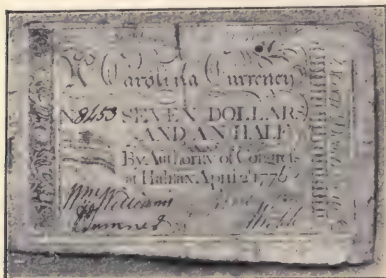 N Carolina Currency
No 8453 SEVEN DOLLARS
AND AN HALF
By Authority of Congress
at Halifax, April 2d 1776
Wm Williams
J Sumner Webb